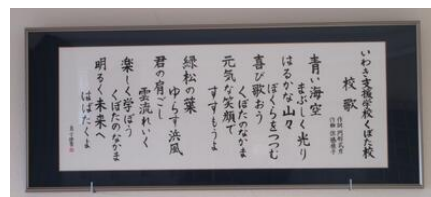 いわき支援学校くぼた校
校歌
青い海空
まぶしく光り
はるかな山々
ぼくらをつつむ
喜び歌おう
くぼたのなかま
元気な笑顔で
すすもうよ
緑松の葉
ゆらす浜風
君の肩ごし
雲流れいく
楽しく学ぼう
くぼたのなかま
明るく未来へ
はばたくよ